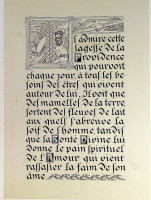 l admire cette
sagesse de la
Providence
qui pourvoit
chaque jour à tous les be
soins des êtres qui vivent
autour de lui. Ainsi que
des mamelles de la terre
sortent des fleuves de lait
aux quels s'abreuve la
soif de l'homme, tandis
que la Bonté Divine lui
donne le pain spirituel
de l'Amour qui vient
rassasier la faim de son
âme